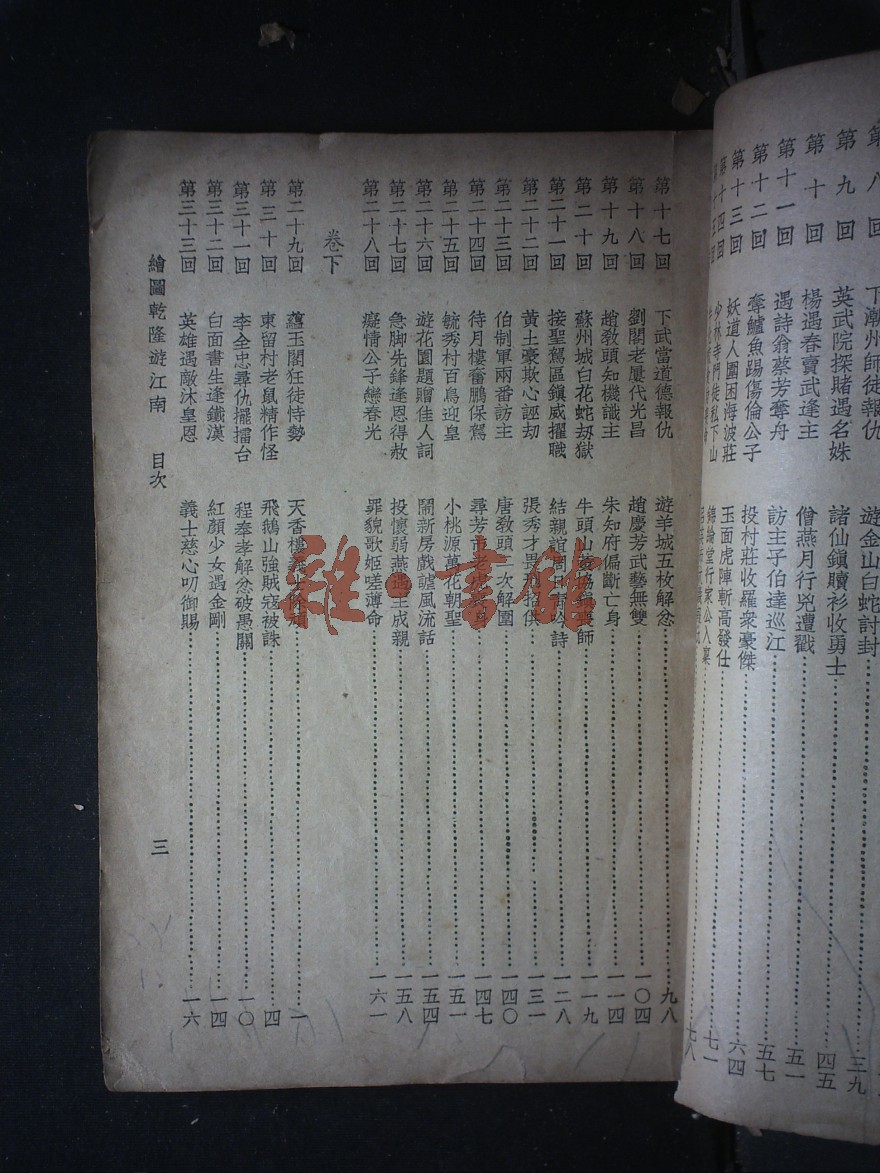 第八回 下潮州師徒報仇 遊金山白蛇討封
第九回 英武院探賭遇名姝 諸仙鎭贖衫收勇士 三九
第十回 楊遇春賣武逢主 僧燕月行兇遭戳 四五
第十一回 遇詩翁蔡芳奪舟 訪主子伯達巡江 五一
第十二回 奪鱸魚踢傷倫公子 投村莊收羅衆豪傑 五七
第十三回 妖道人圍困海波莊 玉面虎陣斬高發仕 六四
第十四回 少林寺門徒私下山 錦綸堂行家公入稟 七一
第十五回 七八
第十七回 下武當道德報仇 遊羊城五枚解忿 九八
第十八回 劉閣老屢代光昌 趙慶芳武藝無雙 一〇四
第十九回 趙敎頭知機識主 朱知府偏斷亡身 一一四
第二十回 蘇州城白花蛇刼獄 牛頭山 師 一一九
第二十一回 接聖駕區鎭威擢職 結親誼周日靑吟詩 一二八
第二十二回 黃土豪欺心誣刧 張秀才畏刑招供 一三一
第二十三回 伯制軍兩番訪主 唐敎頭二次解圍 一四〇
第二十四回 待月樓奮鵬保駕 尋芳市老虎 一四七
第二十五回 毓秀村百鳥迎皇 小桃源萬花朝聖 一五一
第二十六回 遊花園題贈佳人詞 鬧新房戲謔風流話 一五四
第二十七回 急脚先鋒逢恩得赦 投懷弱燕遇主成親 一五八
第二十八回 癡情公子戀春光 罪貌歌姬嗟薄命 一六一
卷下
第二十九回 蘊玉閣狂徒恃勢 天香樓義士除頑 一
第三十回 東留村老鼠精作怪 飛鵝山強賊寇被誅 四
第三十一回 李全忠尋仇擺擂台 程奉孝解忿破愚關 一〇
第三十二回 白面書生逢鐵漢 紅顏少女遇金剛 一四
第三十三回 英雄遇敵沐皇恩 義士慈心叨御賜 一六
繪圖乾隆遊江南 目次 三
雜·書館